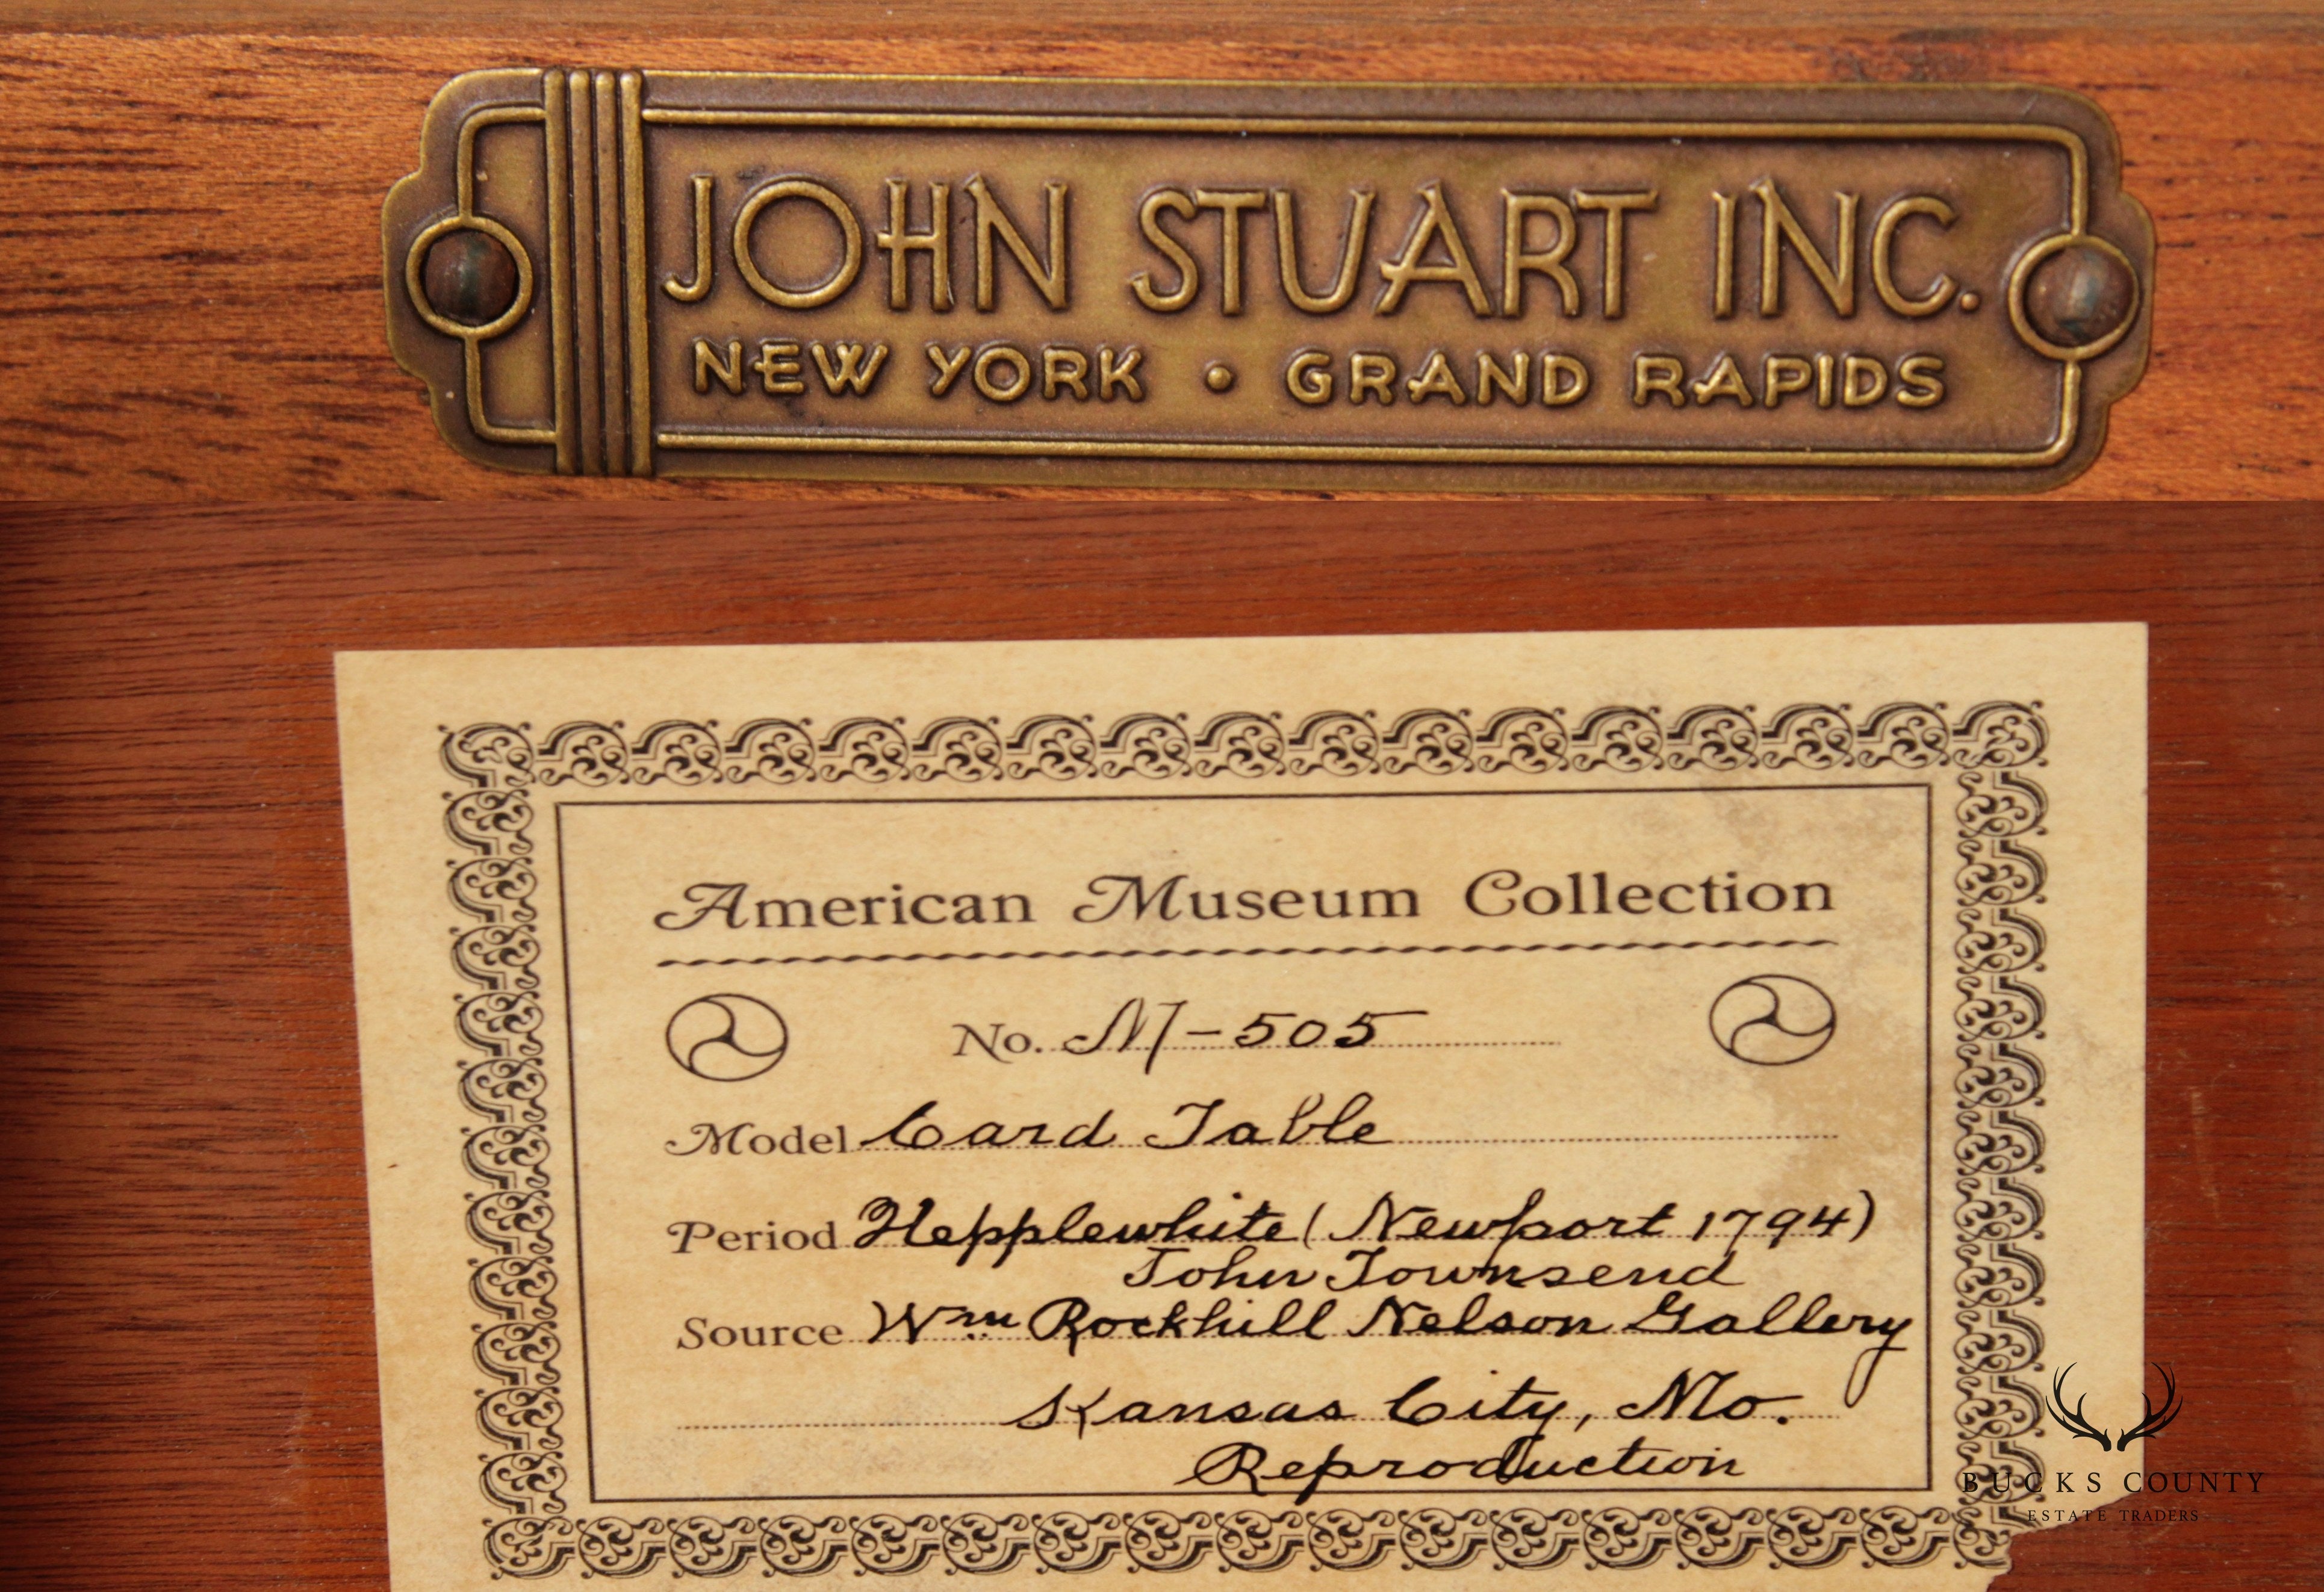 JOHN STUART INC.
NEW YORK • GRAND RAPIDS
American Museum Collection
No. M-505
Model Card Table
Period Hepplewhite (Newport 1794)
John Townsend
Source Wm Rockhill Nelson Gallery
Kansas City, Mo.
Reproduction
BUCKS COUNTY
ESTATE TRADERS